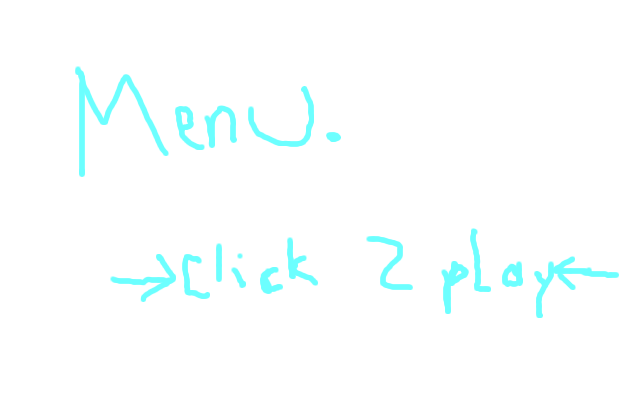 Menu.
→Click 2 play←